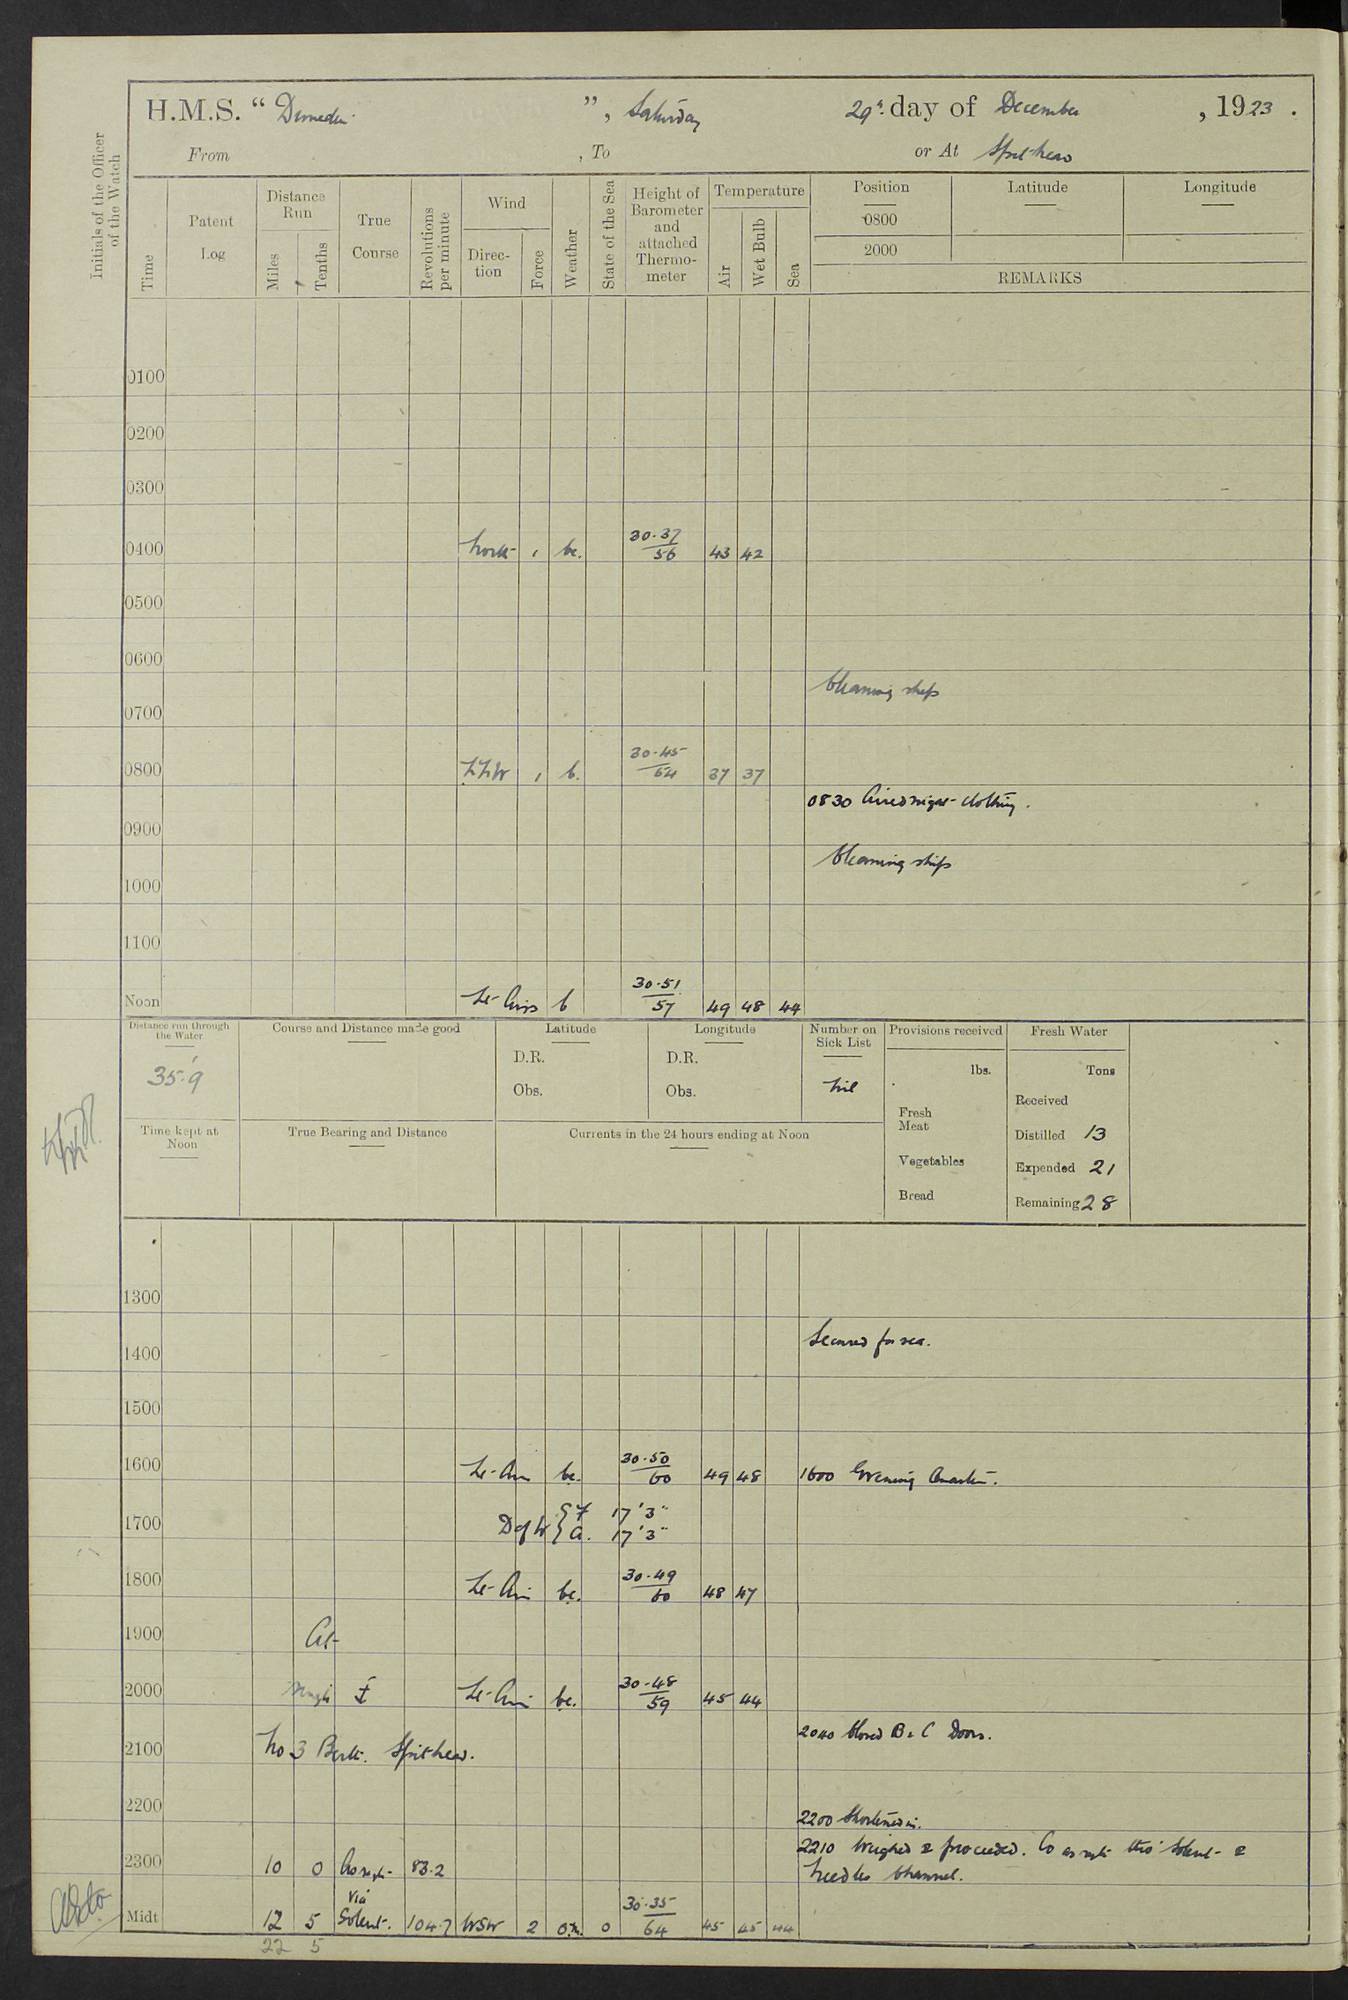 H.M.S. “ Dunedin ”, Saturday 29th day of December , 1923 .
From , To or At Spithead
Initials of the Officer of the Watch
Time
Patent Log
Distance Run
Miles
Tenths
True Course
Revolutions per minute
Wind
Direction
Force
Weather
State of the Sea
Height of Barometer and attached Thermometer
Temperature
Air
Wet Bulb
Sea
Position Latitude Longitude
0800
2000
REMARKS
0100
0200
0300
0400 North 1 bc. 30.37 / 56 43 42
0500
0600
Cleaning ship
0700
0800 NNW 1 b. 30.45 / 54 37 37
0830 Aired night clothing.
0900
Cleaning ship
1000
1100
Noon Lt Airs b 30.51 / 57 49 48 44
Distance run through the Water
35.9
Course and Distance made good
Latitude
D.R.
Obs.
Longitude
D.R.
Obs.
Number on Sick List
Nil
Provisions received
lbs.
Fresh Meat
Vegetables
Bread
Fresh Water
Tons
Received
Distilled 13
Expended 21
Remaining 28
Time kept at Noon
True Bearing and Distance
Currents in the 24 hours ending at Noon
1300
Secured for sea.
1400
1500
1600 Lt Air bc. 30.50 / 60 49 48 1600 Evening Quarters.
1700 D of W { F 17'3" A. 17'3"
1800 Lt Air bc. 30.49 / 60 48 47
1900 At
2000 single Lt Air bc. 30.48 / 59 45 44
2040 Closed B & C Doors.
2100 No 3 Berth. Spithead.
2200
2200 Shortened in.
2210 Weighed & proceeded. Co as reqte thro' Solent &
Needles Channel.
2300 10 0 As reqte 83.2
Midt 12 5 via Solent. 104.7 WSW 2 o.m. 0 30.35 / 64 45 45 44
22 5